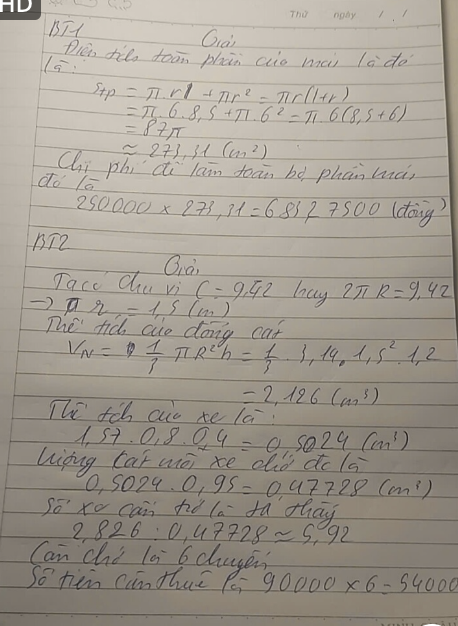 HD
Thứ ngày / /
BT1
Giải
Diện tích toàn phần của mái lá đó
là:
Stp = π.rl + πr² = πr(l+r)
= π.6.8,5 + π.6² = π.6(8,5+6)
= 87π
≈ 273,31 (m²)
Chi phí để làm toàn bộ phần mái
đó là
250000 × 273,31 = 68327500 (đồng)
BT2
Giải
Ta có chu vi C = 9,42 hay 2πR = 9,42
→ r = 1,5 (m)
Thể tích của đống cát
VN = 1/3 πR²h = 1/3 . 3,14 . 1,5² . 1,2
= 2,126 (m³)
Thể tích của xe là:
1,57 . 0,8 . 0,4 = 0,5024 (m³)
Lượng cát mỗi xe chở đc là
0,5024 . 0,95 = 0,47728 (m³)
Số xe cần
2,826 : 0,47728 ≈ 5,92
Cần chở là 6 chuyến
Số tiền cần thuê là 90000 × 6 = 54000